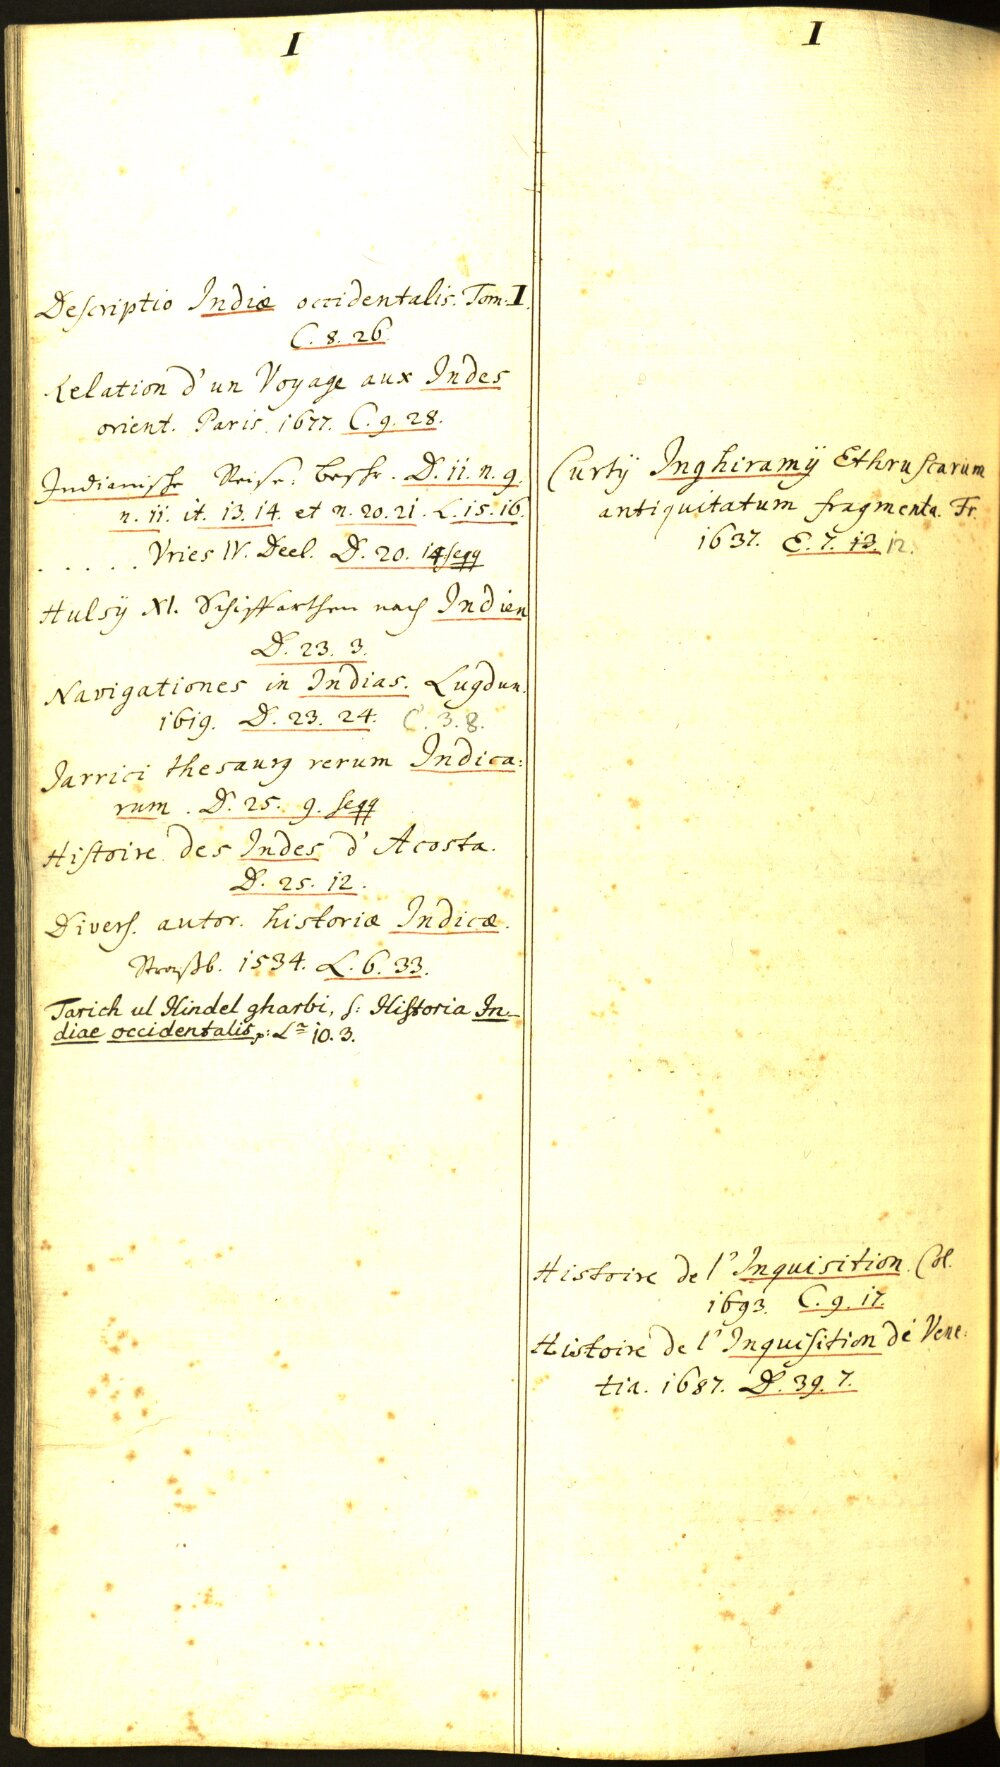 I
Descriptio Indiæ occidentalis. Tom. I.
C. 8. 26
Relation d'un Voyage aux Indes
orient. Paris. 1677. C. 9. 28.
Indianische Reise. beschr. D. 11. n. 9.
n. 11. it. 13. 14. et n. 20. 21. L. 15. 16.
. . . . . Vries IV. Deel. D. 20. 14 seqq
Hulsÿ XI. Schiffarthen nach Indien
D. 23. 3.
Navigationes in Indias. Lugdun.
1619. D. 23. 24. C. 3. 8.
Jarrici thesaurg rerum Indica:
rum. D. 25. 9. seqq
Histoire des Indes d'Acosta.
D. 25. 12.
Divers. autor. historiæ Indicæ.
Straßb. 1534. L. 6. 33.
Tarich ul Hindel gharbi, s: Historia In-
diae occidentalis, p: L 10. 3.
I
Curtÿ Inghiramÿ Ethruscarum
antiquitatum fragmenta. Fr.
1637. E. 7. 13. 12.
Histoire de l'Inquisition. Col.
1693. C. 9. 17.
Histoire de l'Inquisition de Vene:
tia. 1687. D. 39. 7.